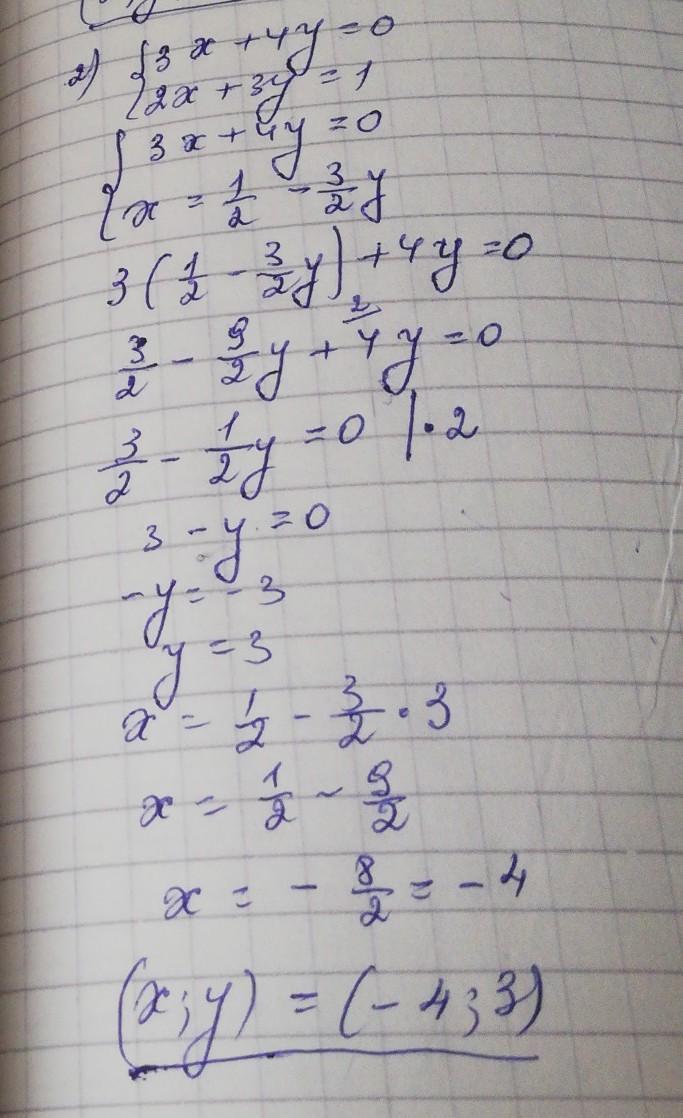 2) { 3x + 4y = 0
2x + 3y = 1
{ 3x + 4y = 0
x = 1/2 - 3/2 y
3 ( 1/2 - 3/2 y ) + 4y = 0
3/2 - 9/2 y + 4y = 0
3/2 - 1/2 y = 0 | · 2
3 - y = 0
-y = -3
y = 3
x = 1/2 - 3/2 · 3
x = 1/2 - 9/2
x = - 8/2 = - 4
(x; y) = (- 4; 3)